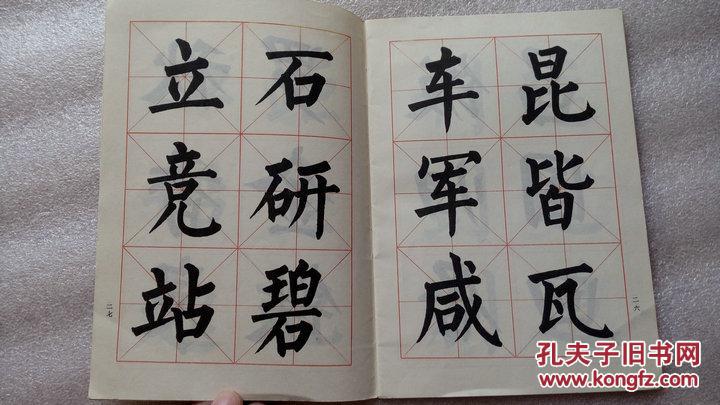 昆皆瓦
车军咸
二六
石研碧
立竟站
二七
孔夫子旧书网
www.kongfz.com